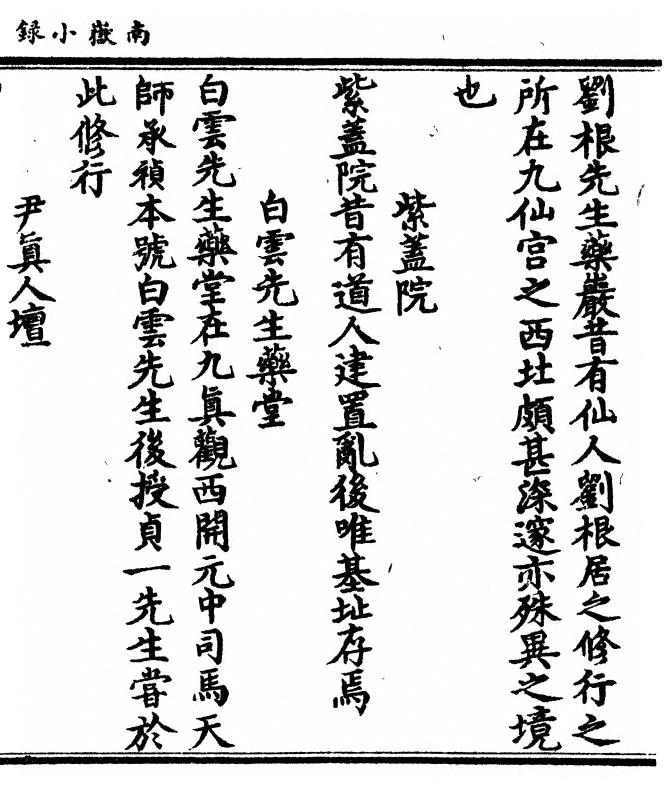 南嶽小錄
劉根先生藥巖昔有仙人劉根居之修行之
所在九仙宫之西北頗甚深邃亦殊異之境
也
紫蓋院
紫蓋院昔有道人建置亂後唯基址存焉
白雲先生藥堂
白雲先生藥堂在九眞觀西開元中司馬天
師承禎本號白雲先生後授貞一先生嘗於
此修行
尹眞人壇